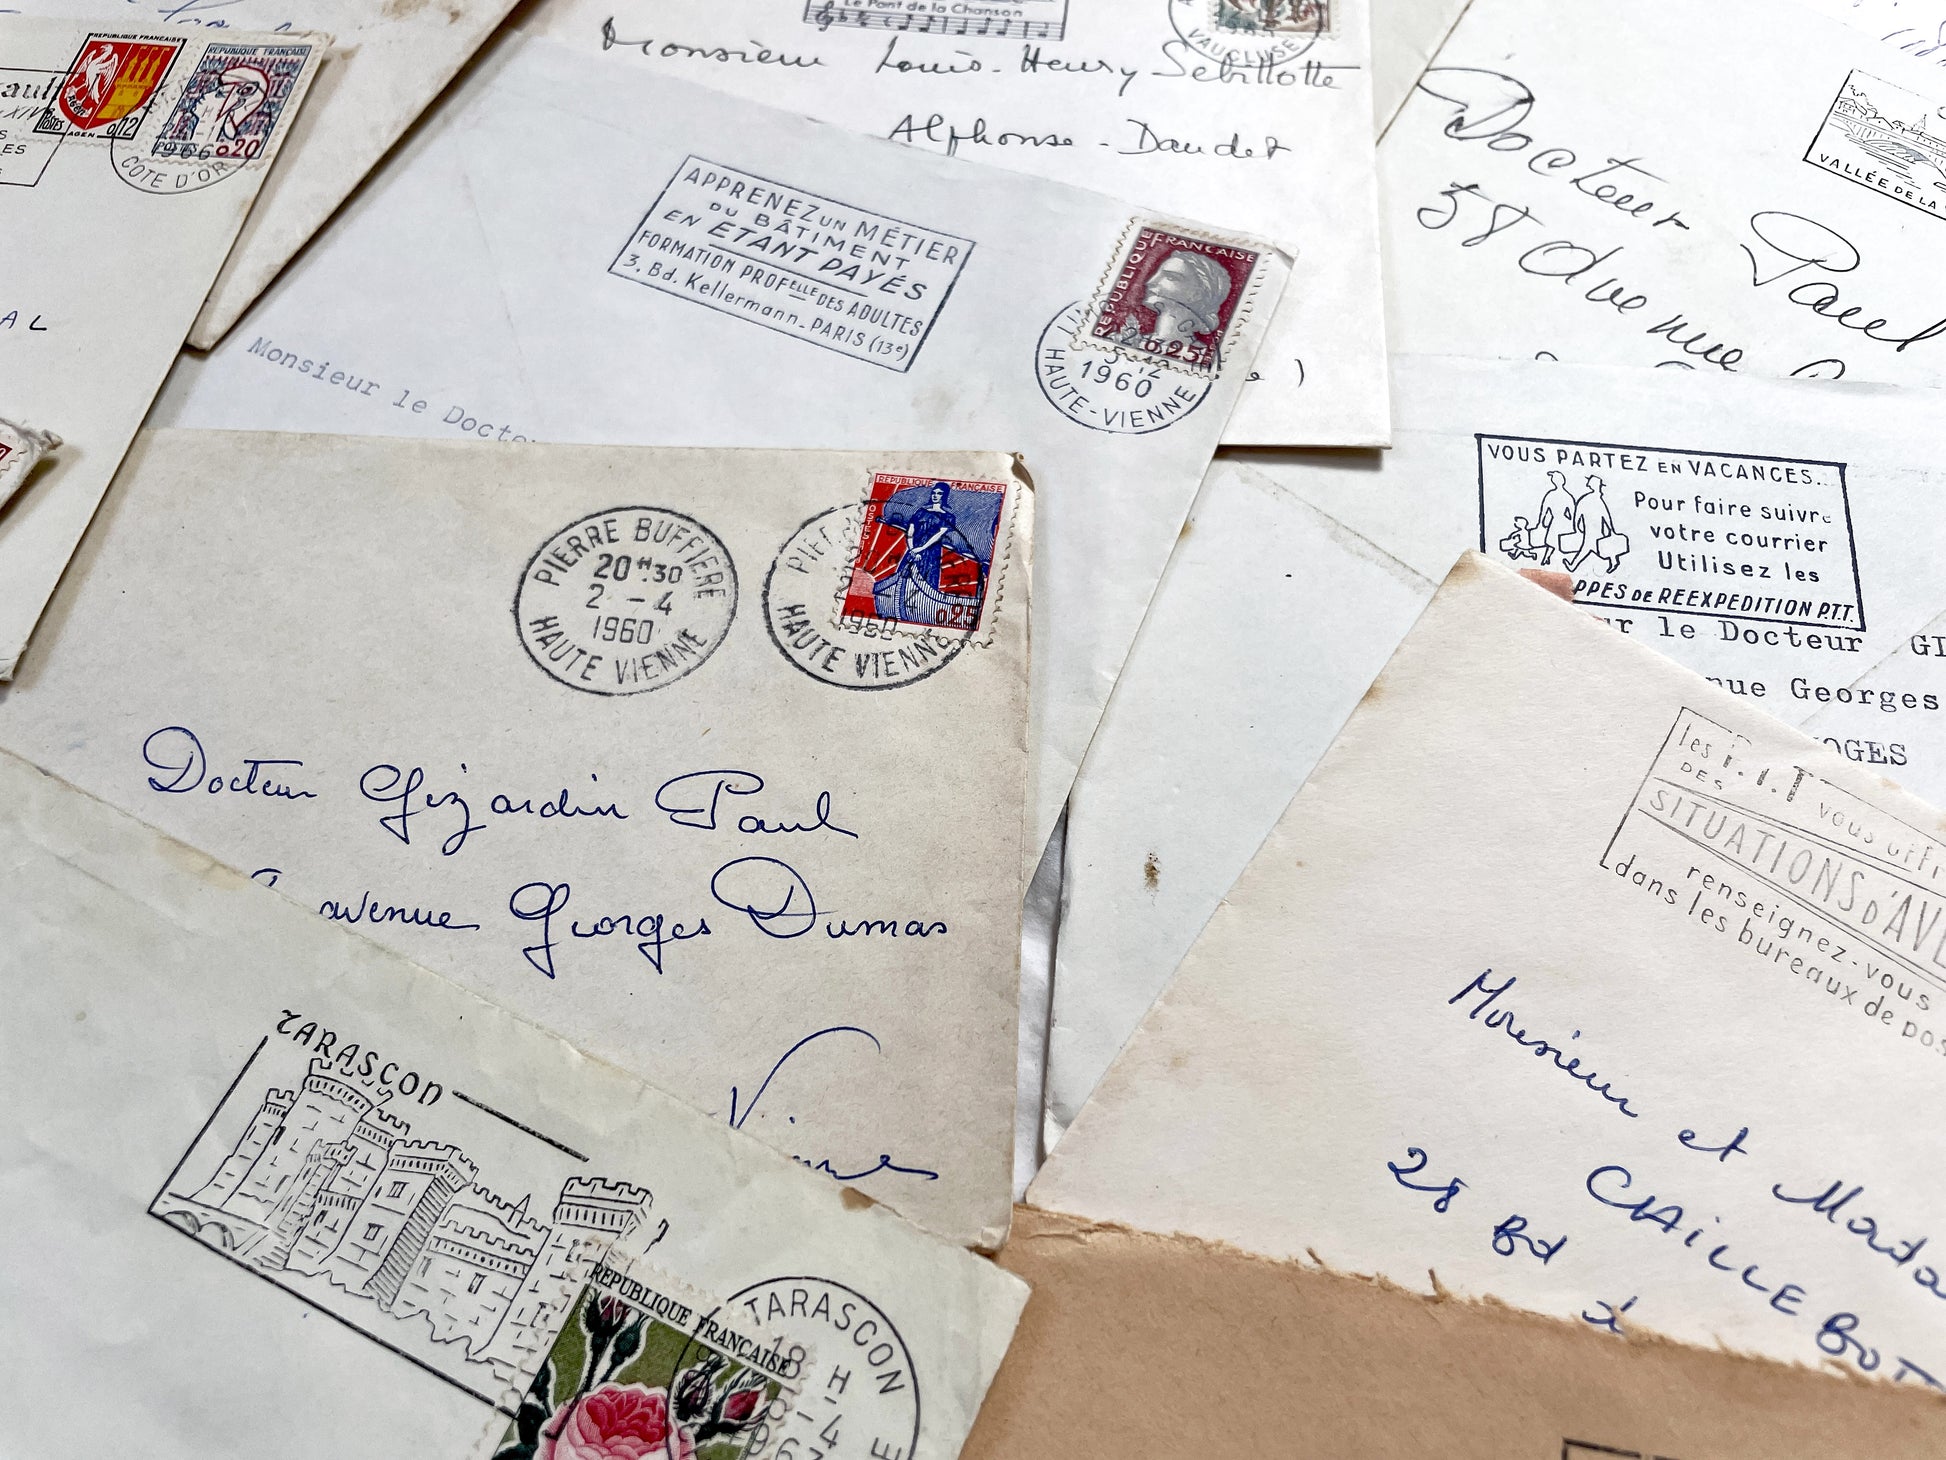 REPUBLIQUE FRANÇAISE
AGEN
0,12
REPUBLIQUE FRANÇAISE
POSTES 0,20
1966
COTE D'OR
AL
Le Pont de la Chanson
VAUCLUSE
Monsieur Louis-Henry Sebillotte
Alphonse-Daudet
APPRENEZ UN MÉTIER
DU BÂTIMENT
EN ÉTANT PAYÉS
FORMATION PROFELLE DES ADULTES
3. Bd. Kellermann_PARIS (13e)
REPUBLIQUE FRANÇAISE
0,25
1960
HAUTE-VIENNE
Monsieur le
Docteur Paul
VALLÉE DE LA
VOUS PARTEZ EN VACANCES...
Pour faire suivre
votre courrier
Utilisez les
PPES DE REEXPEDITION P.T.T.
le Docteur GI
Georges
OGES
PIERRE BUFFIERE
20H30
2 - 4
1960
HAUTE VIENNE
REPUBLIQUE FRANÇAISE
POSTES
0,25
1960
HAUTE VIENNE
Docteur Gizardin Paul
avenue Georges Dumas
Vienne
les P.T.T vous
DES
SITUATIONS D'AV
renseignez-vous
dans les bureaux de pos
Monsieur et Mada
CAILLEBOT
28 Bd
TARASCON
REPUBLIQUE FRANÇAISE
TARASCON
18 H
8-4